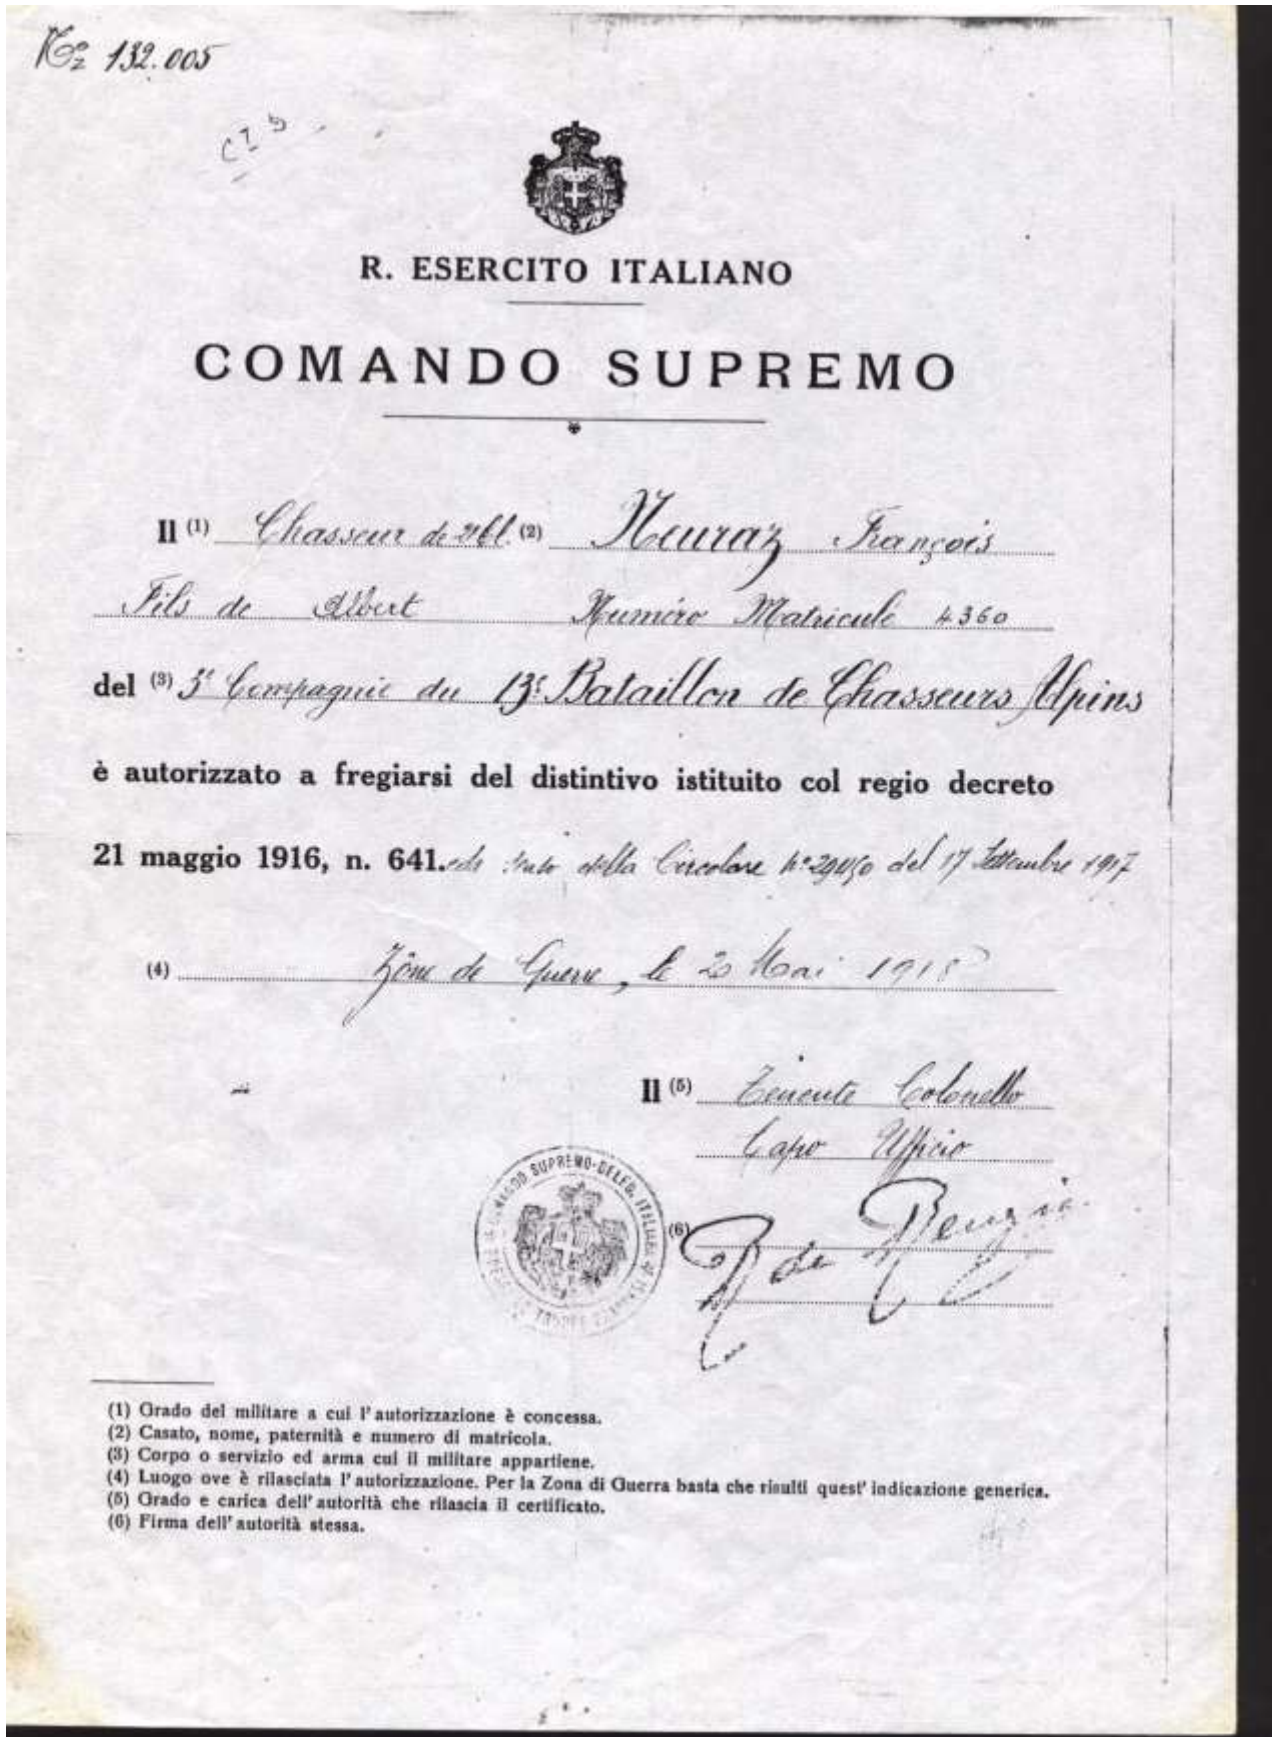 No 132.005
R. ESERCITO ITALIANO
COMANDO SUPREMO
Il (1) Chasseur de 2e cl. (2) Neuraz François
Fils de Albert Numéro Matricule 4360
del (3) 3e Compagnie du 13e Bataillon de Chasseurs Alpins
è autorizzato a fregiarsi del distintivo istituito col regio decreto
21 maggio 1916, n. 641. della Circolare No del 17 Settembre 1917
(4) Zône de Guerre, le 20 Mai 1918
Il (5) Tenente Colonello
Capo Ufficio
(6) R de Renzis
COMANDO SUPREMO-DELEG. ITALIANA
(1) Grado del militare a cui l'autorizzazione è concessa.
(2) Casato, nome, paternità e numero di matricola.
(3) Corpo o servizio ed arma cui il militare appartiene.
(4) Luogo ove è rilasciata l'autorizzazione. Per la Zona di Guerra basta che risulti quest'indicazione generica.
(5) Grado e carica dell'autorità che rilascia il certificato.
(6) Firma dell'autorità stessa.